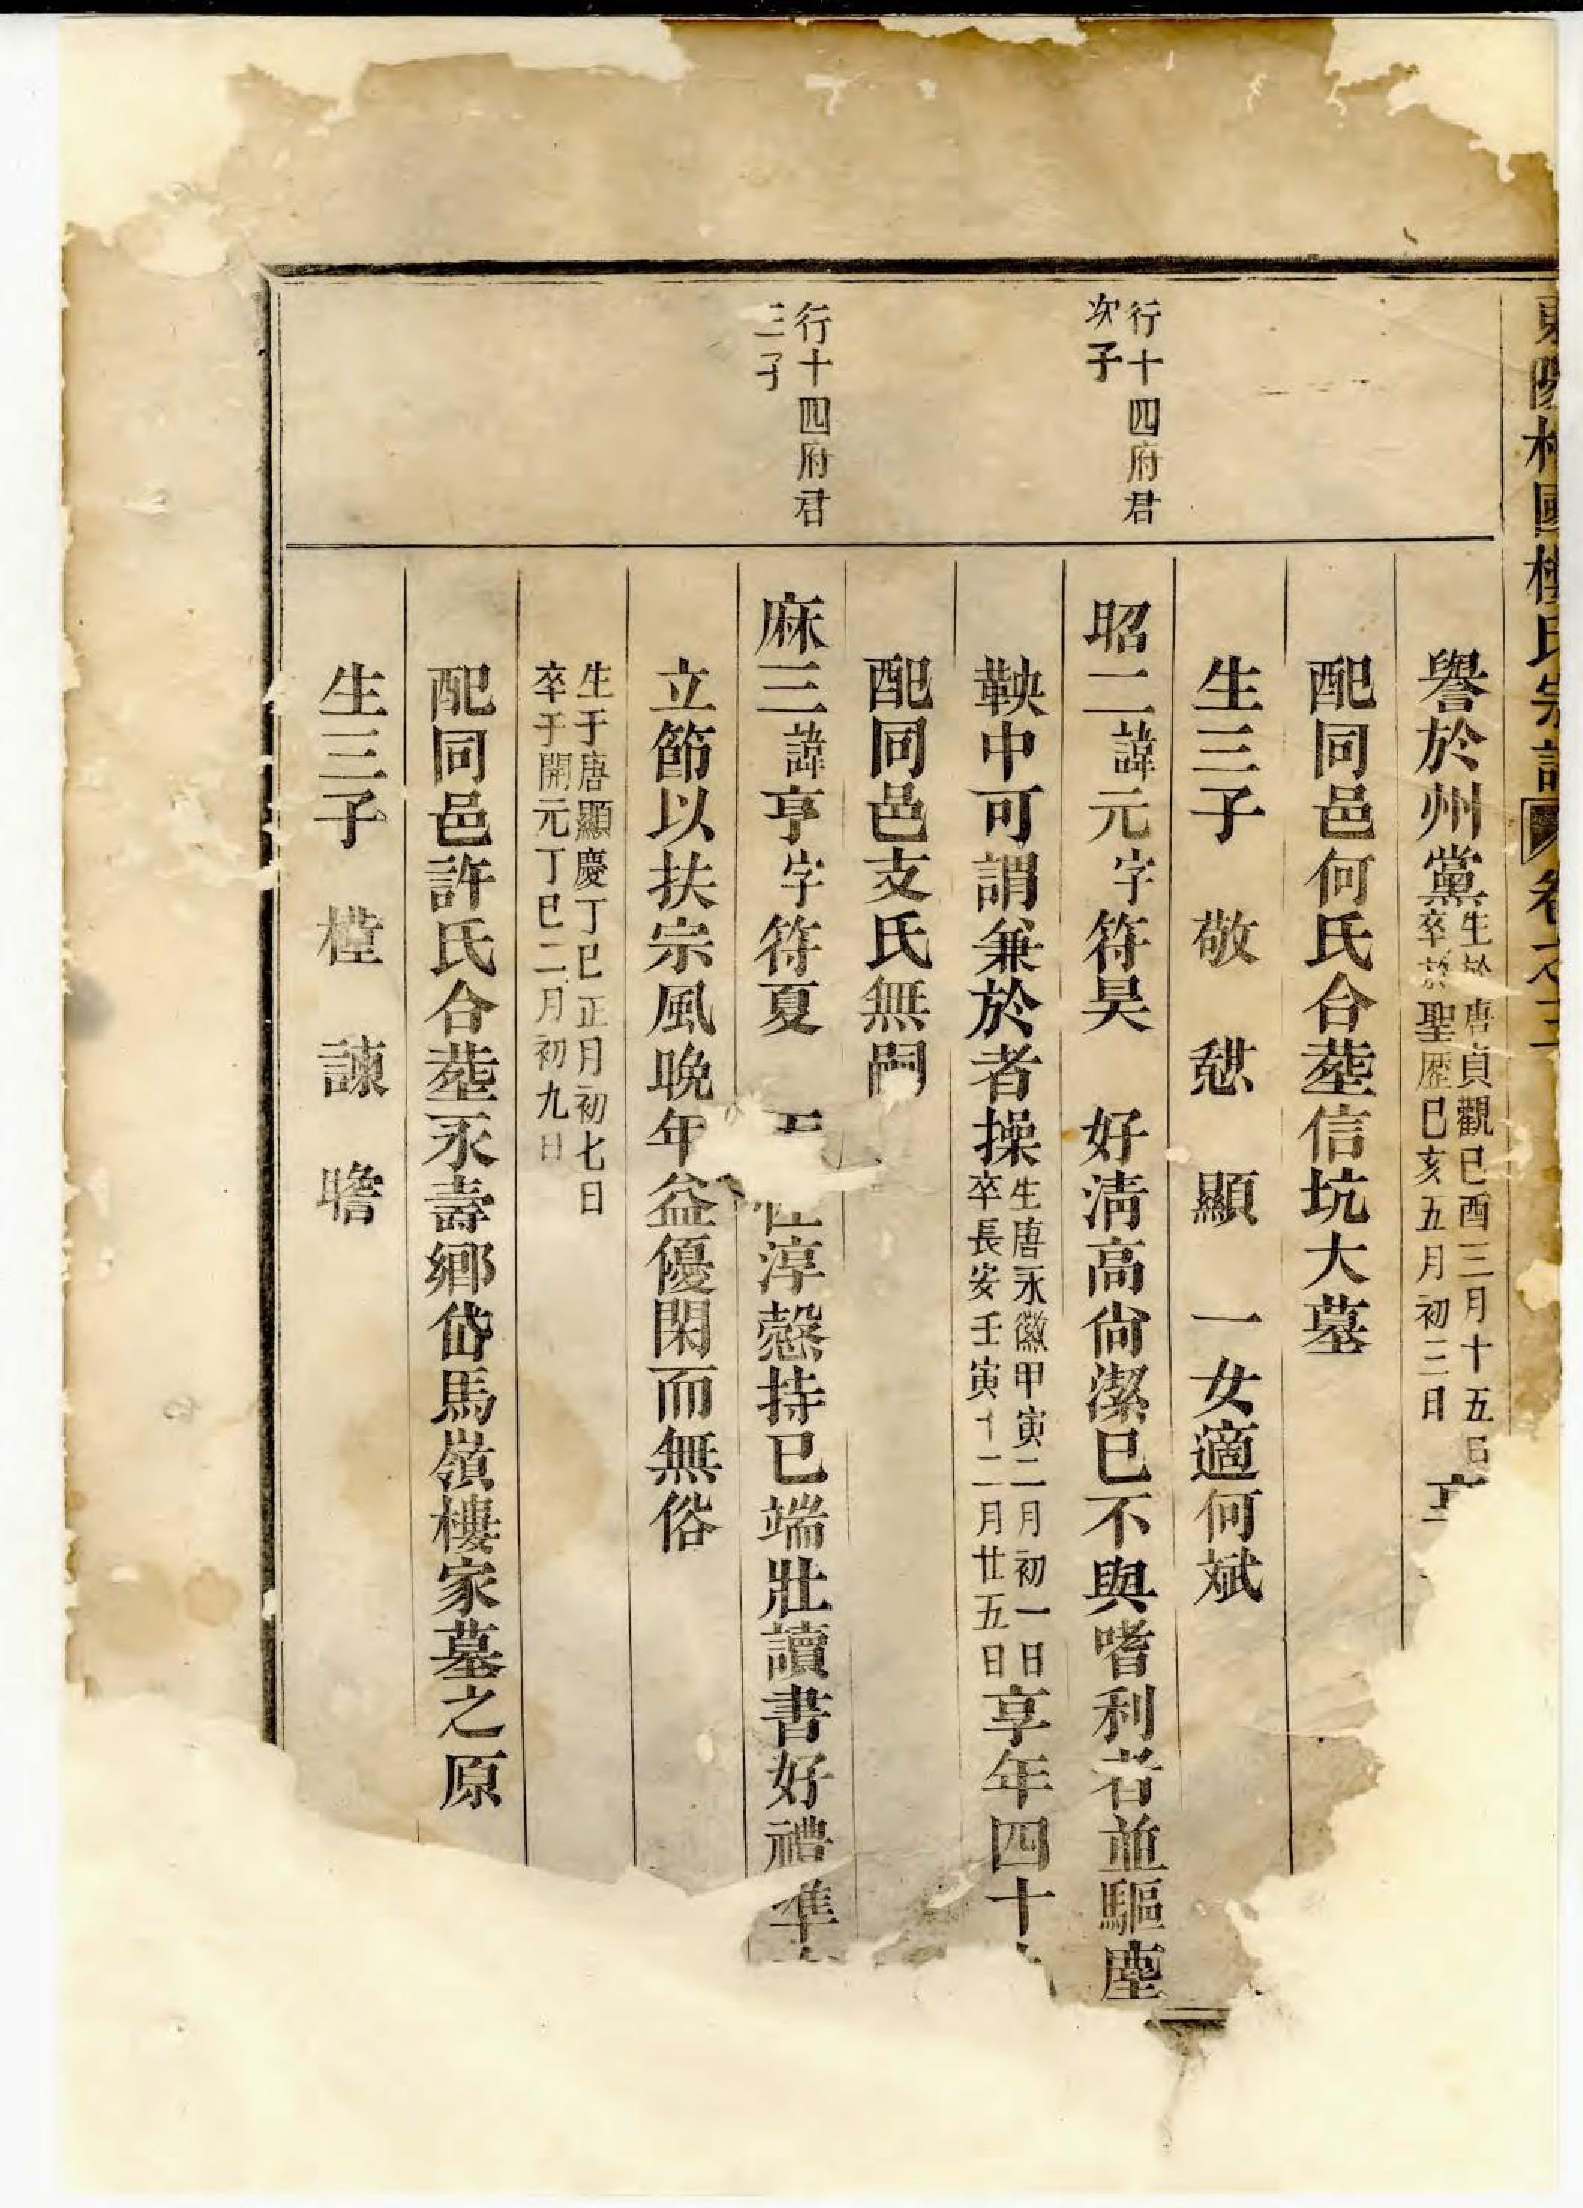 樓氏宗譜
譽於州黨
生於唐貞觀己酉三月十五日
卒於聖歷己亥五月初三日
配同邑何氏合塟信坑大墓
生三子 敬 愻 顯 一女適何斌
行十四府君
次子
昭二諱元字符昊 好清高尙潔已不與嗜利者並驅塵
鞅中可謂兼於者操
生唐永徽甲寅二月初一日
卒長安壬寅十二月廿五日
享年四十
配同邑支氏無嗣
行十四府君
三子
麻三諱亨字符夏 淳慤持已端壯讀書好禮準
立節以扶宗風晚年益優閑而無俗
生于唐顯慶丁巳正月初七日
卒于開元丁巳二月初九日
配同邑許氏合塟永壽鄉岱馬嶺樓家墓之原
生三子 樘 諫 瞻